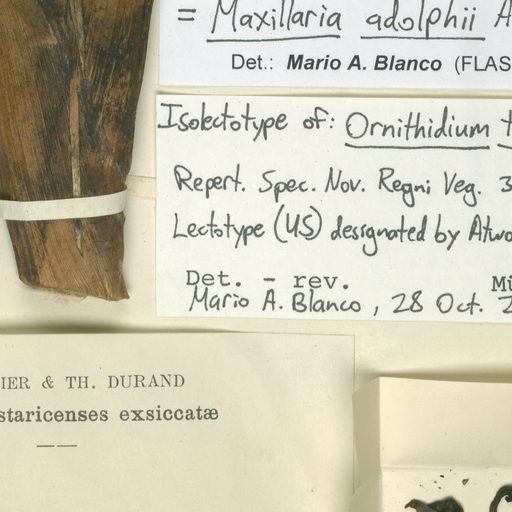 = Maxillaria adolphii A
Det.: Mario A. Blanco (FLAS
Isolectotype of: Ornithidium t
Repert. Spec. Nov. Regni Veg. 3
Lectotype (US) designated by Atwo
Det. - rev. Mü
Mario A. Blanco, 28 Oct. 2
IER & TH. DURAND
staricenses exsiccatæ